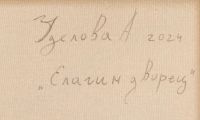 Уделова А 2024
„Елагин дворец"